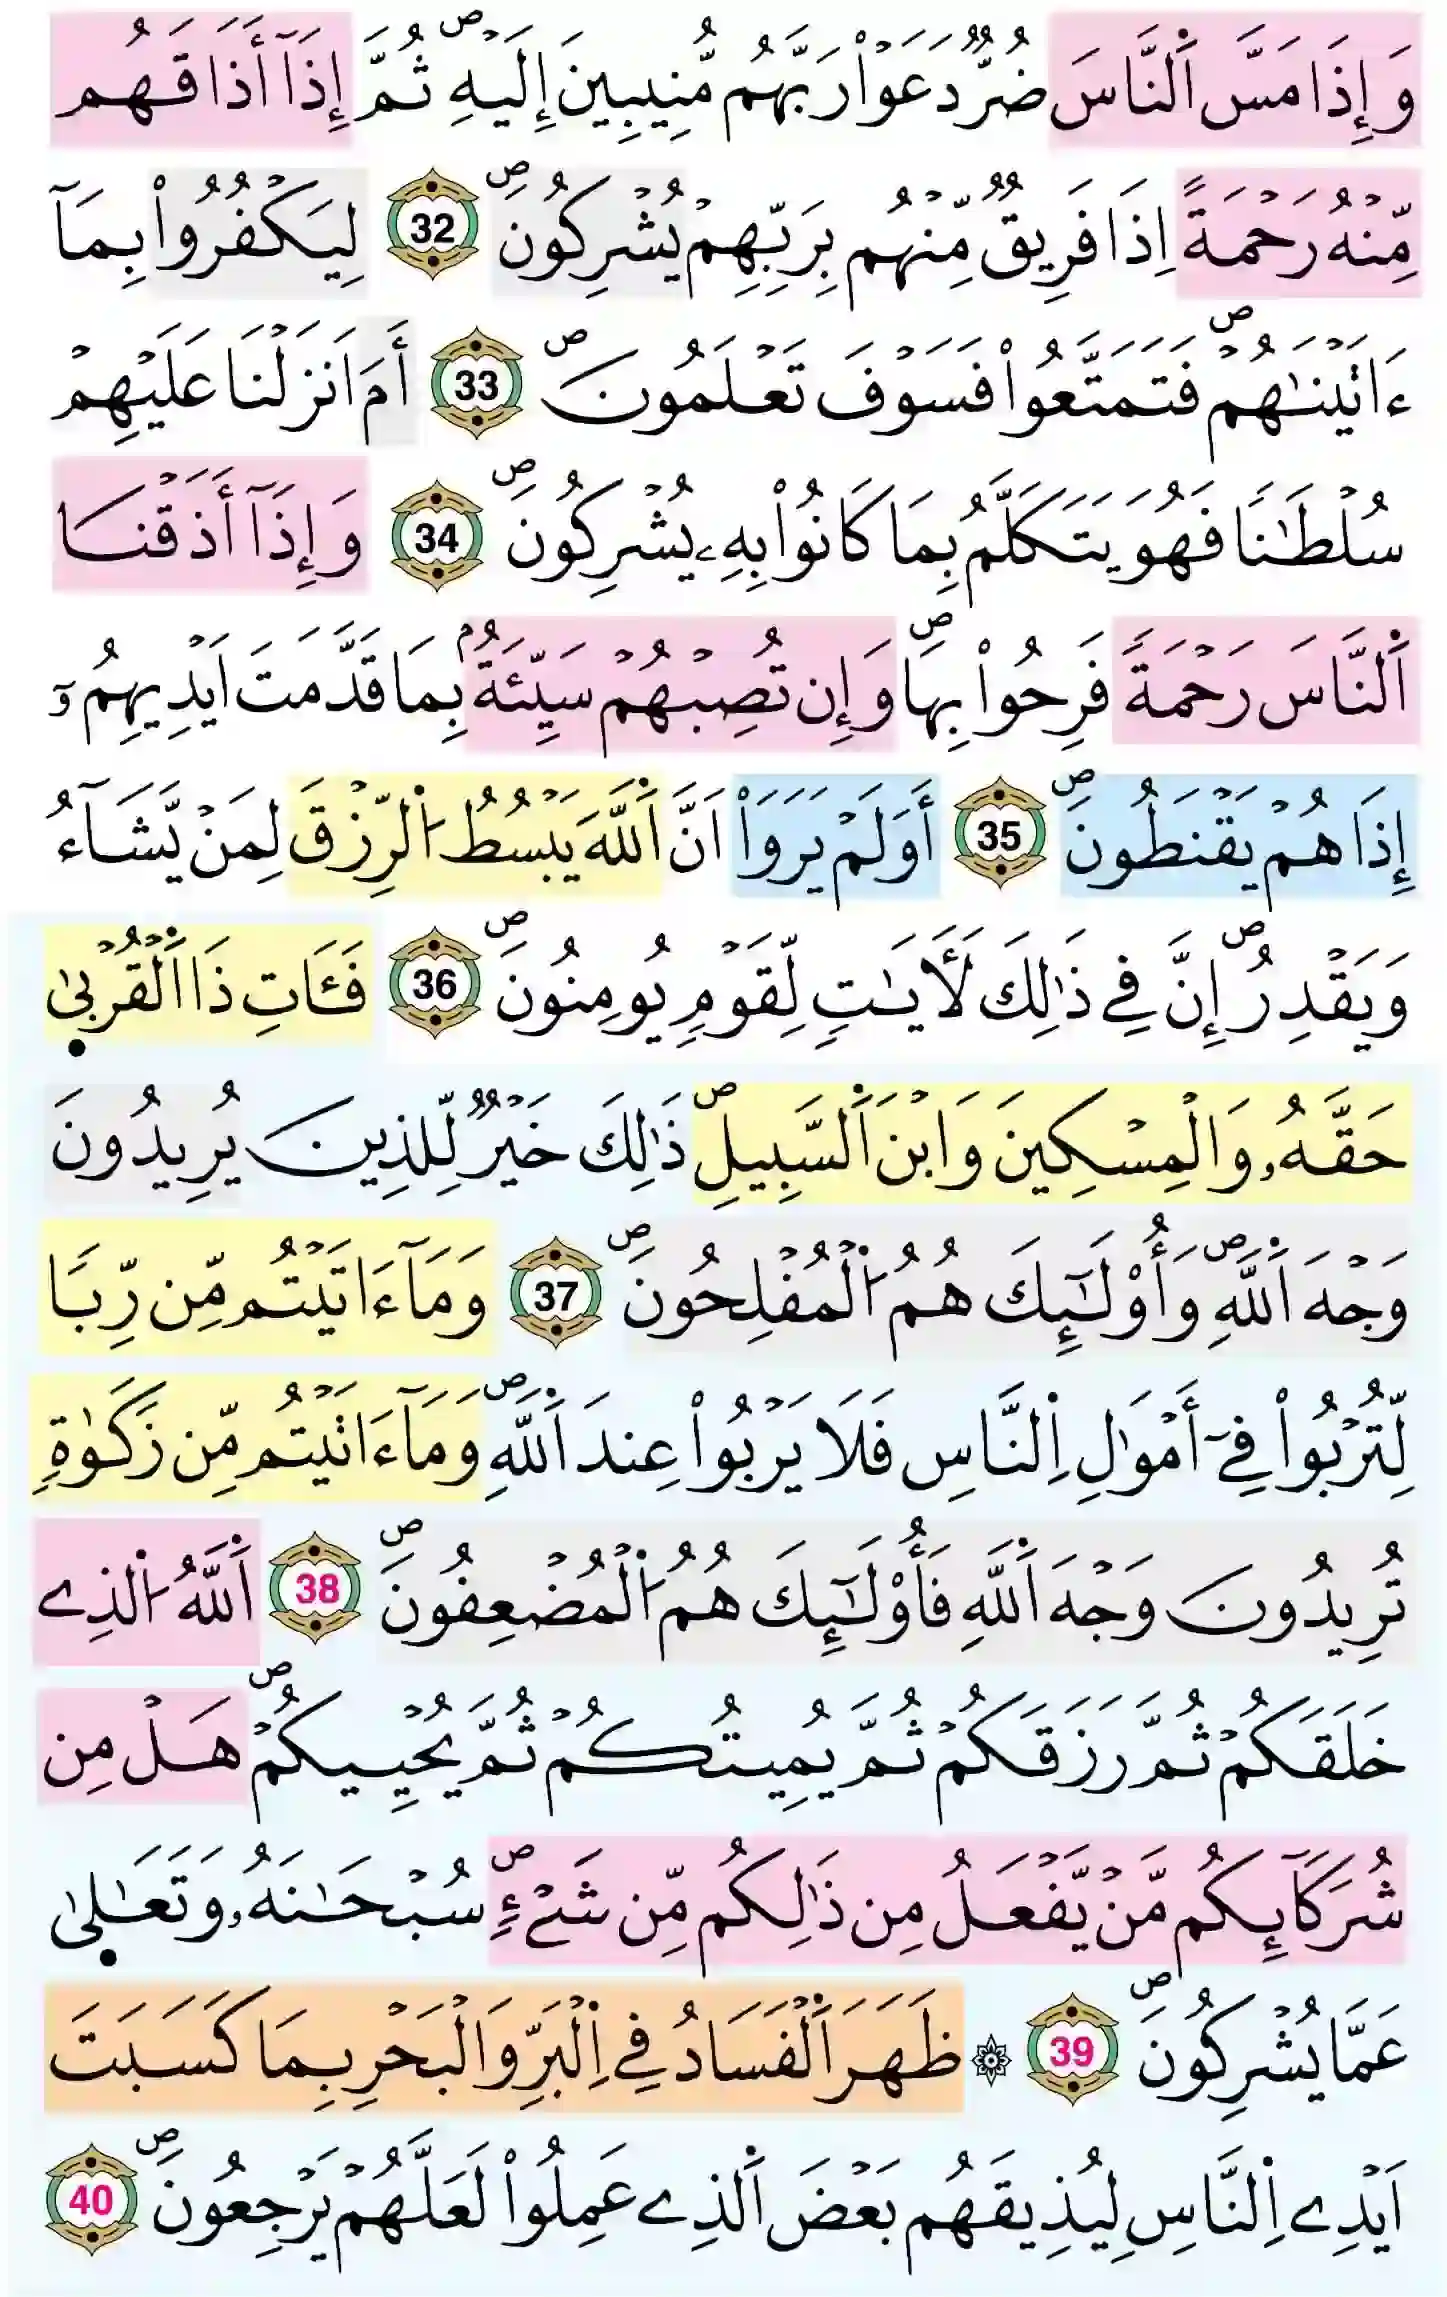 وَإِذَا مَسَّ اَ۬لنَّاسَ ضُرّٞ دَعَوْاْ رَبَّهُم مُّنِيبِينَ إِلَيْهِۖ ثُمَّ إِذَآ أَذَاقَهُم
مِّنْهُ رَحْمَةً اِذَا فَرِيقٞ مِّنْهُم بِرَبِّهِمْ يُشْرِكُونَۖ 32 لِيَكْفُرُواْ بِمَآ
ءَاتَيْنَٰهُمْۖ فَتَمَتَّعُواْ فَسَوْفَ تَعْلَمُونَۖ 33 أَمَ اَنزَلْنَا عَلَيْهِمْ
سُلْطَٰنٗا فَهُوَ يَتَكَلَّمُ بِمَا كَانُواْ بِهِۦ يُشْرِكُونَۖ 34 وَإِذَآ أَذَقْنَا
اَ۬لنَّاسَ رَحْمَةٗ فَرِحُواْ بِهَاۖ وَإِن تُصِبْهُمْ سَيِّئَةُۢ بِمَا قَدَّمَتَ اَيْدِيهِمُۥٓ
إِذَا هُمْ يَقْنَطُونَۖ 35 أَوَلَمْ يَرَوَاْ اَنَّ اَ۬للَّهَ يَبْسُطُ اُ۬لرِّزْقَ لِمَنْ يَّشَآءُ
وَيَقْدِرُۖ إِنَّ فِے ذَٰلِكَ لَأٓيَٰتٖ لِّقَوْمٖ يُومِنُونَۖ 36 فَـَٔاتِ ذَا اَ۬لْقُرْب۪يٰ
حَقَّهُۥ وَالْمِسْكِينَ وَابْنَ اَ۬لسَّبِيلِۖ ذَٰلِكَ خَيْرٞ لِّلذِينَ يُرِيدُونَ
وَجْهَ اَ۬للَّهِۖ وَأُوْلَٰٓئِكَ هُمُ اُ۬لْمُفْلِحُونَۖ 37 وَمَآ ءَاتَيْتُم مِّن رِّباٗ
لِّتُرْبُواْ فِےٓ أَمْوَٰلِ اِ۬لنَّاسِ فَلَا يَرْبُواْ عِندَ اَ۬للَّهِۖ وَمَآ ءَاتَيْتُم مِّن زَكَوٰةٖ
تُرِيدُونَ وَجْهَ اَ۬للَّهِ فَأُوْلَٰٓئِكَ هُمُ اُ۬لْمُضْعِفُونَۖ 38 اَ۬للَّهُ اُ۬لذِے
خَلَقَكُمْ ثُمَّ رَزَقَكُمْ ثُمَّ يُمِيتُكُمْ ثُمَّ يُحْيِيكُمْۖ هَلْ مِن
شُرَكَآئِكُم مَّنْ يَّفْعَلُ مِن ذَٰلِكُم مِّن شَےْءٖۖ سُبْحَٰنَهُۥ وَتَعَٰل۪يٰ
عَمَّا يُشْرِكُونَۖ 39 ۞ ظَهَرَ اَ۬لْفَسَادُ فِے اِ۬لْبَرِّ وَالْبَحْرِ بِمَا كَسَبَتَ
اَيْدِے اِ۬لنَّاسِ لِيُذِيقَهُم بَعْضَ اَ۬لذِے عَمِلُواْ لَعَلَّهُمْ يَرْجِعُونَۖ 40